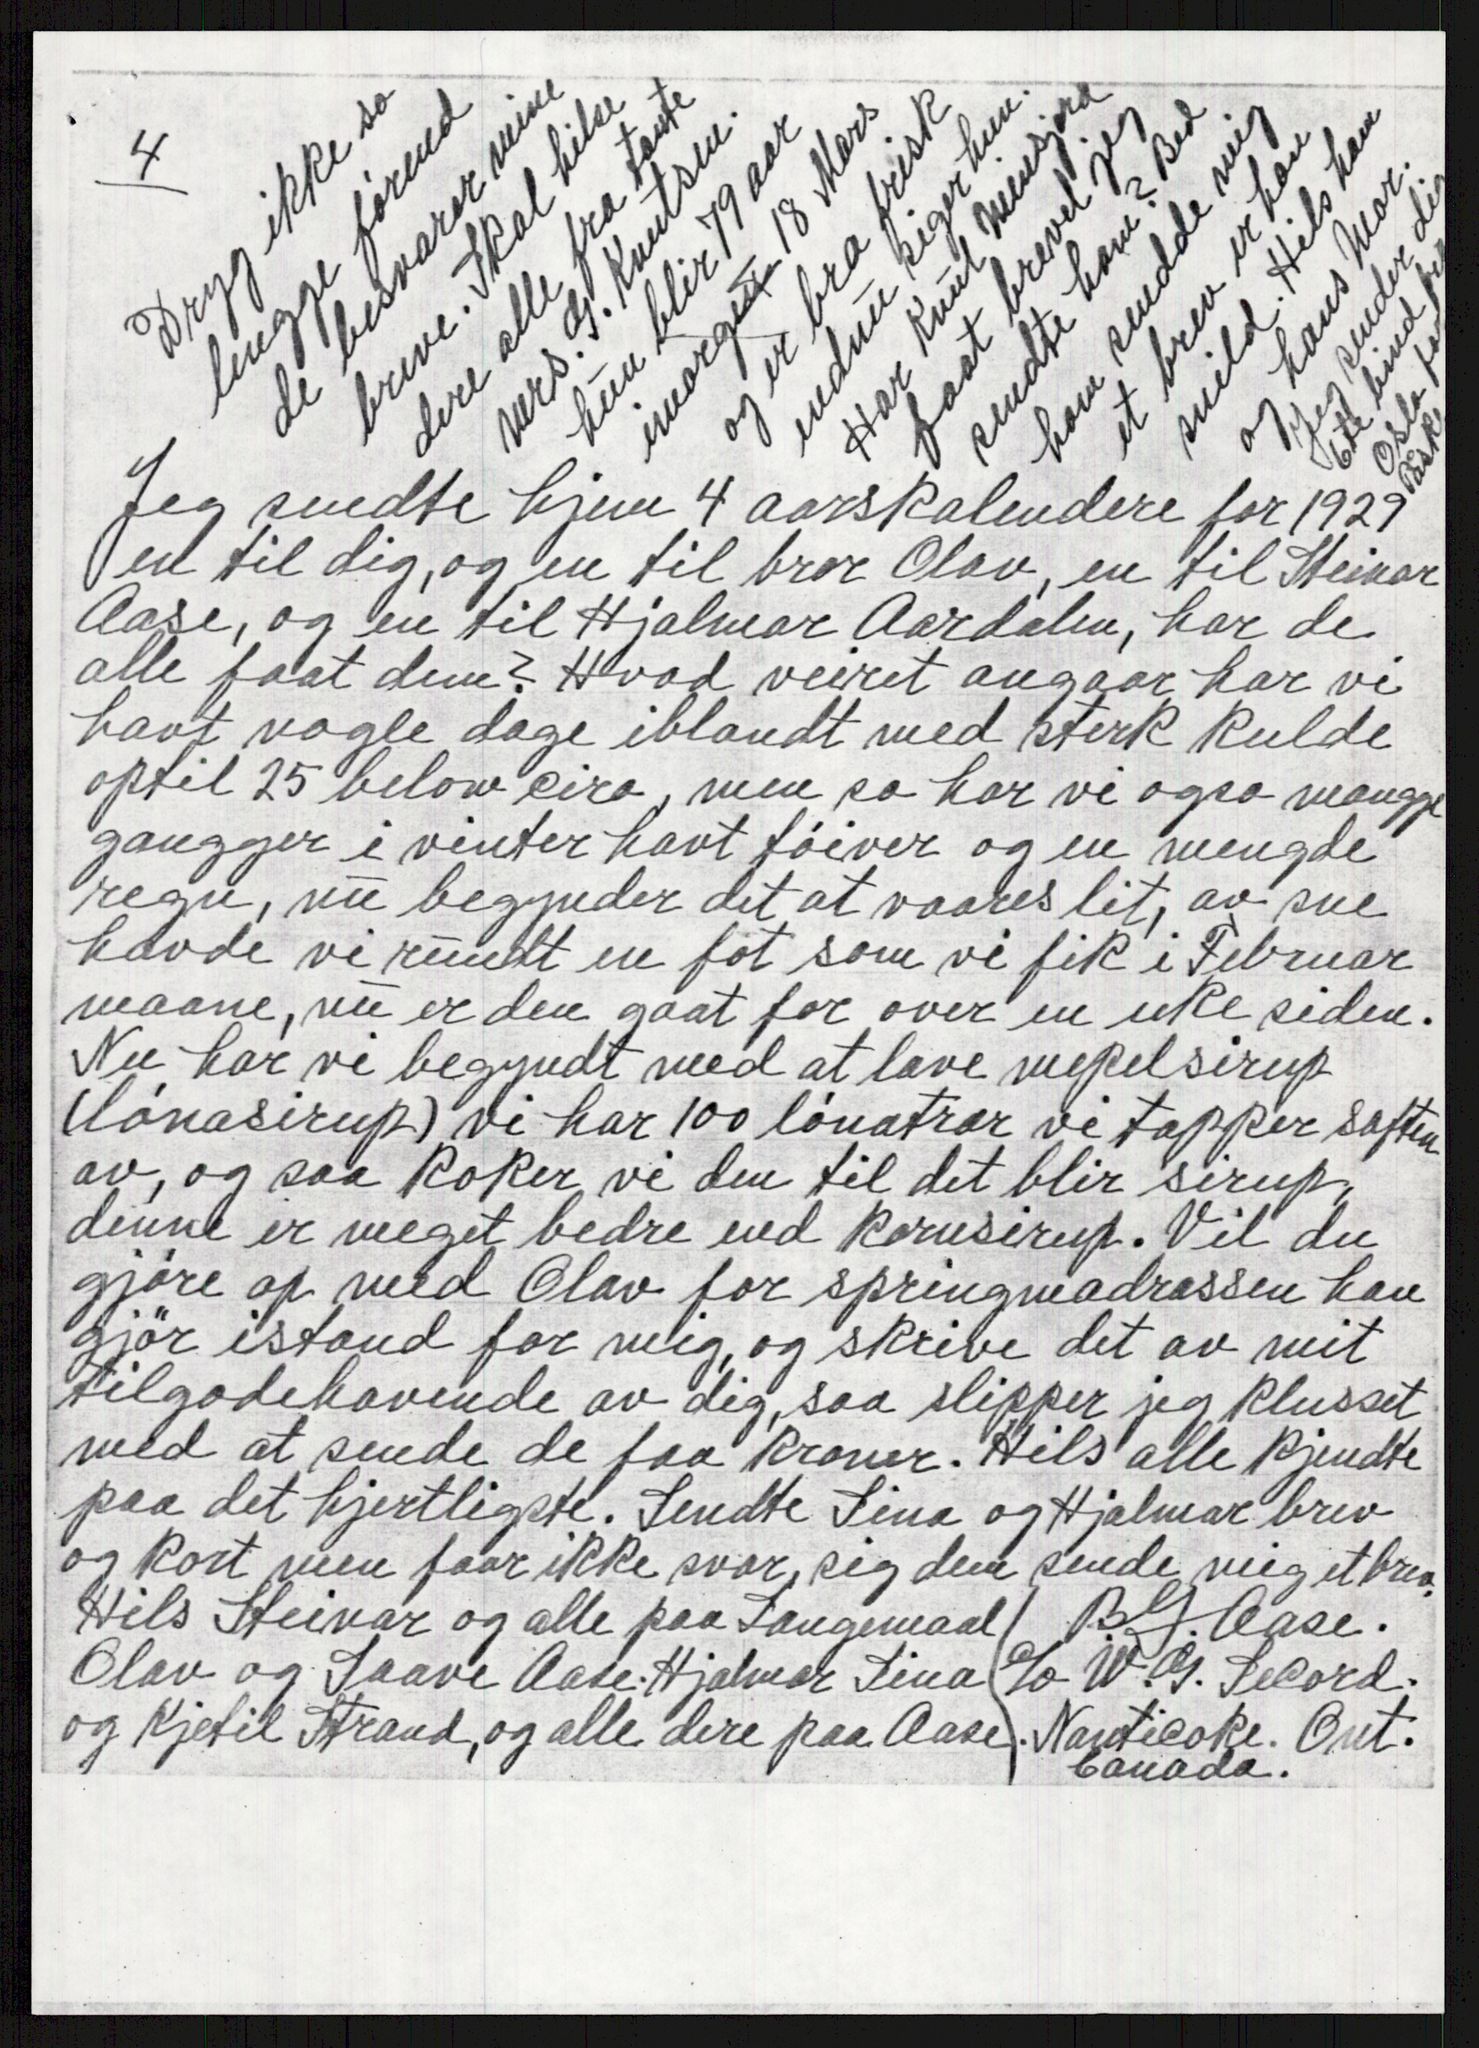 4
Dryg ikke so
lengge førend
de besvarar mine
breve. Skal hilse
dere alle fra tante
Mrs. G. Knutsen.
hun blir 79 aar
imorgen 18 Mars
og er bra frisk
endnu siger hun.
Har Knut
faat brevet jeg
sendte ham? Bed
ham sendde mig
et brev er han
snild. Hils ham
og hans Mor.
Jeg sender dig
Ete bind
Oslo
Jeg sendte hjem 4 aarskalendere for 1929
en til dig, og en til bror Olav, en til Steinar
Aase, og en til Hjalmar Aardalen, har de
alle faat dem? Hvad veiret angaar har vi
havt nogle dage iblandt med sterk kulde
optil 25 below ciro, men so har vi ogso mangge
gangger i vinter havt tóiver og en mengde
regn, nu begynder det at vaares lit, av sne
havde vi rundt en fot som vi fik i Februar
maane, nu er den gaat for over en uke siden.
Nu har vi begyndt med at lave mepelsirup
(lónasirup) vi har 100 lónatrær vi tapper saften
av, og saa koker vi den til det blir sirup,
denne er meget bedre end kornsirup. Vil du
gjóre op med Olav for springmadrassen han
gjör istand for mig, og skrive det av mit
tilgodehavende av dig, saa slipper jeg klusset
med at sende de faa kroner. Hils alle kjendte
paa det hjertligste. Sendte Sina og Hjalmar brev
og kort men faar ikke svar, sig dem sende mig et brev.
Hils Steinar og alle paa Langemaal
Olav og Saave Aase. Hjalmar Sina
og Kjetil Strand, og alle dere paa Aase.
B. G. Aase.
c/o W. G. Secord.
Nanticoke. Ont.
Canada.